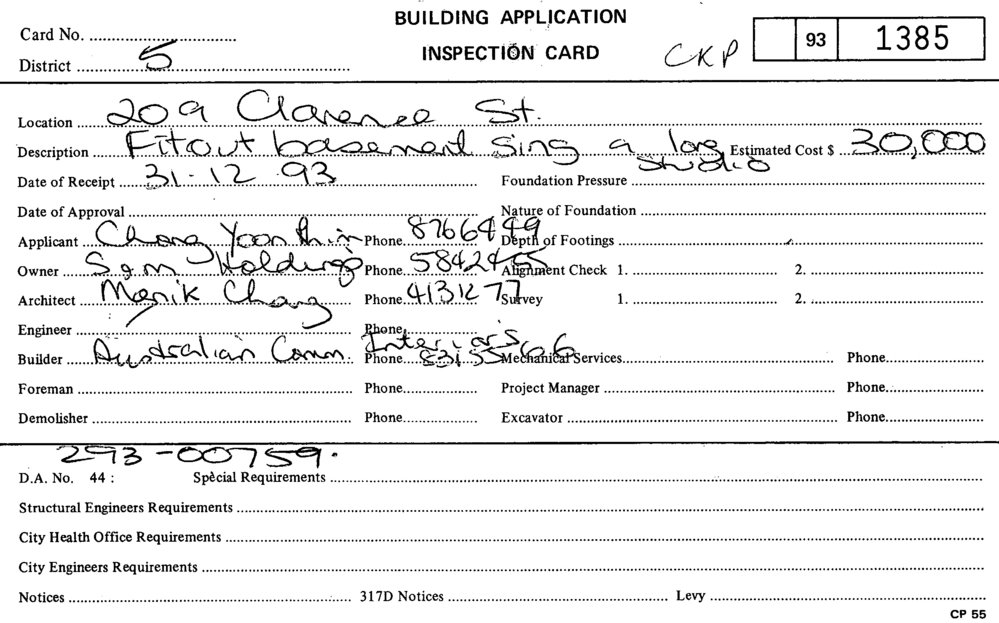 Card No.
BUILDING APPLICATION
INSPECTION CARD
CKP
93 1385
District 5
Location 209 Clarence St.
Description Fitout basement Sing a long studio Estimated Cost $ 30,000
Date of Receipt 31-12 93 Foundation Pressure
Date of Approval Nature of Foundation
Applicant Chang Yoon Phone 8766449 Depth of Footings
Owner Sam Holdings Phone 5842455 Alignment Check 1. 2.
Architect Manik Chang Phone 4131277 Survey 1. 2.
Engineer Phone
Builder Australian Comm. Interiors Phone 8315566 Mechanical Services Phone
Foreman Phone Project Manager Phone
Demolisher Phone Excavator Phone
293-00759.
D.A. No. 44 : Special Requirements
Structural Engineers Requirements
City Health Office Requirements
City Engineers Requirements
Notices 317D Notices Levy
CP 55